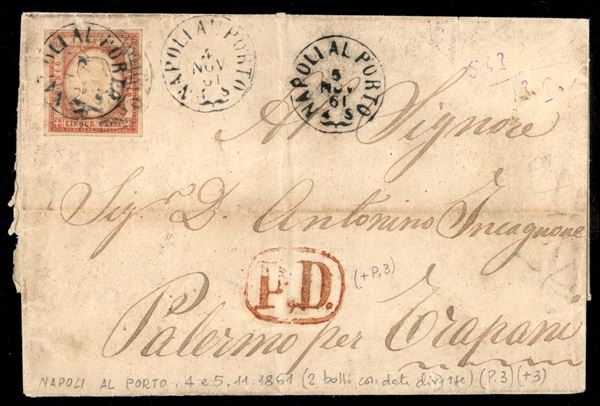 NAPOLI AL PORTO
NAPOLI AL PORTO
4
NOV
61
NAPOLI AL PORTO
5
NOV
61
4 S
CINQUE
Al Signore
Sig.r D. Antonino Incagnone
P.D.
(+P.3)
Palermo per Trapani
NAPOLI AL PORTO, 4 e 5.11.1861 (2 bolli con date diverse) (P.3) (+3)